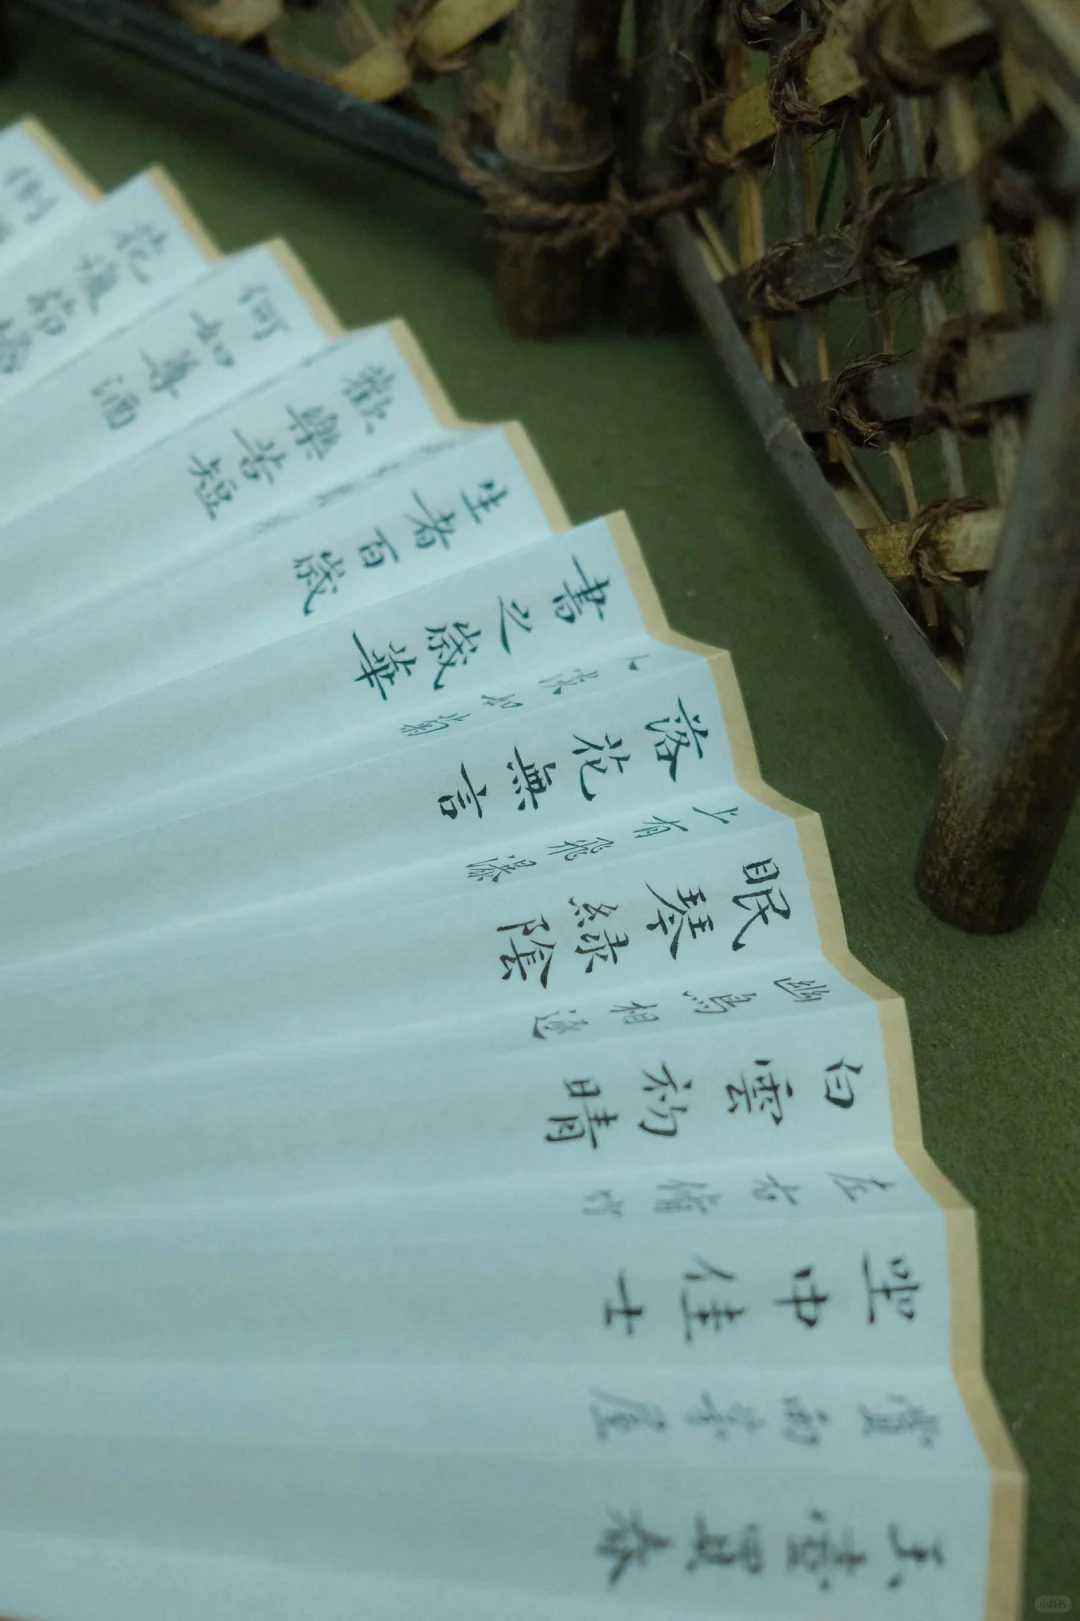 玉壺買春
賞雨茅屋
坐中佳士
左右脩竹
白雲初晴
幽鳥相逐
眠琴綠陰
上有飛瀑
落花無言
人淡如菊
書之歲華
生者百歲
歡樂苦短
何如尊酒
花覆茆檐
倒